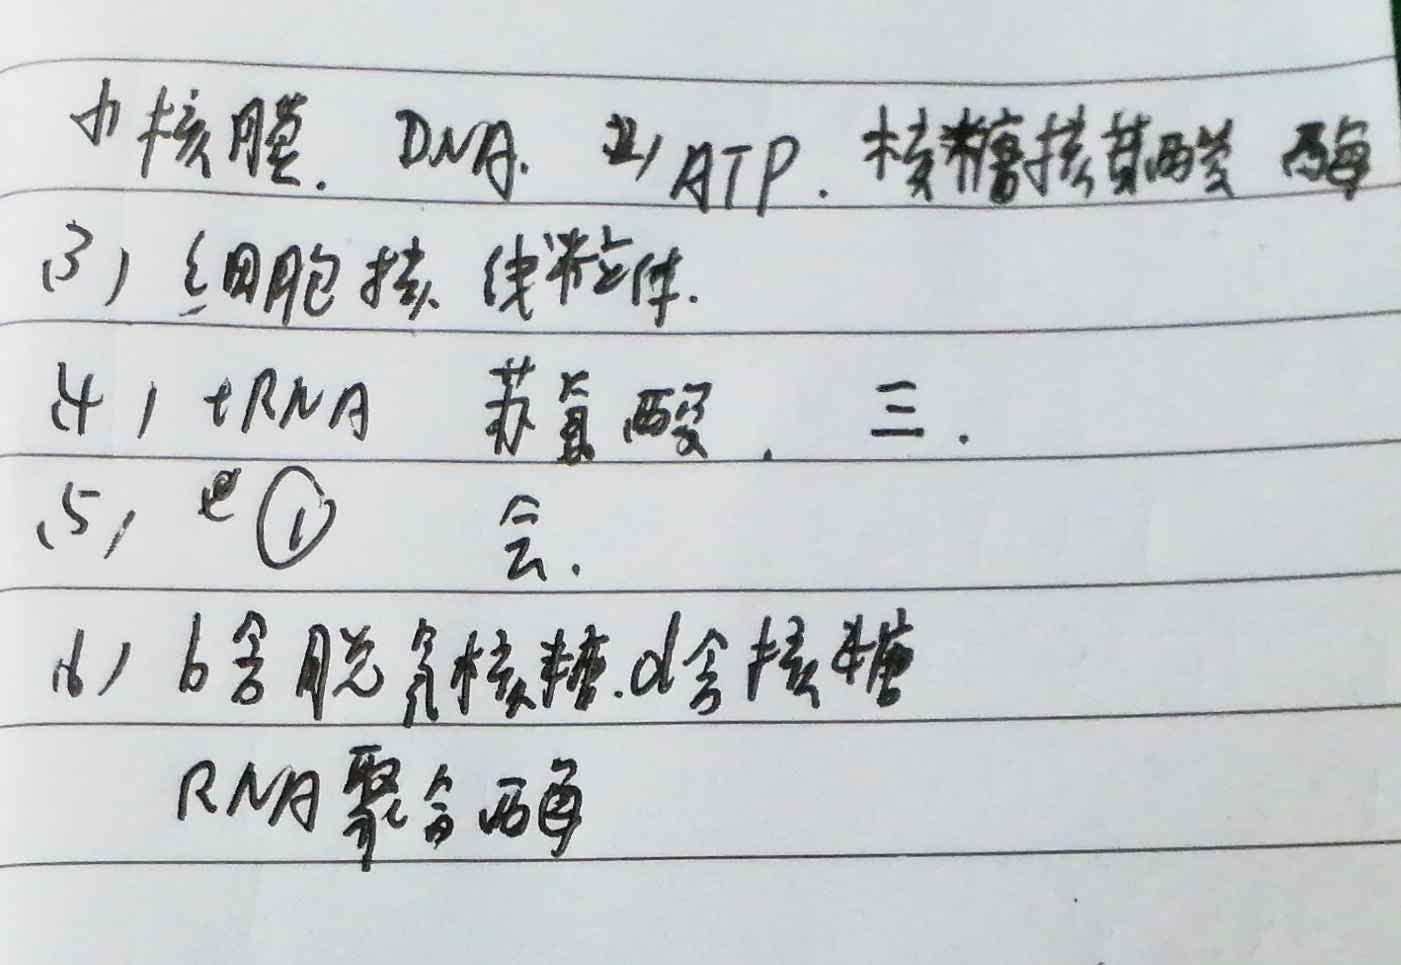 (1) 核膜. DNA. (2) ATP. 核糖核苷酸 酶
(3) 细胞核 线粒体.
(4) tRNA 苏氨酸. 三.
(5) ① 会.
(6) b含脱氧核糖.d含核糖
RNA聚合酶